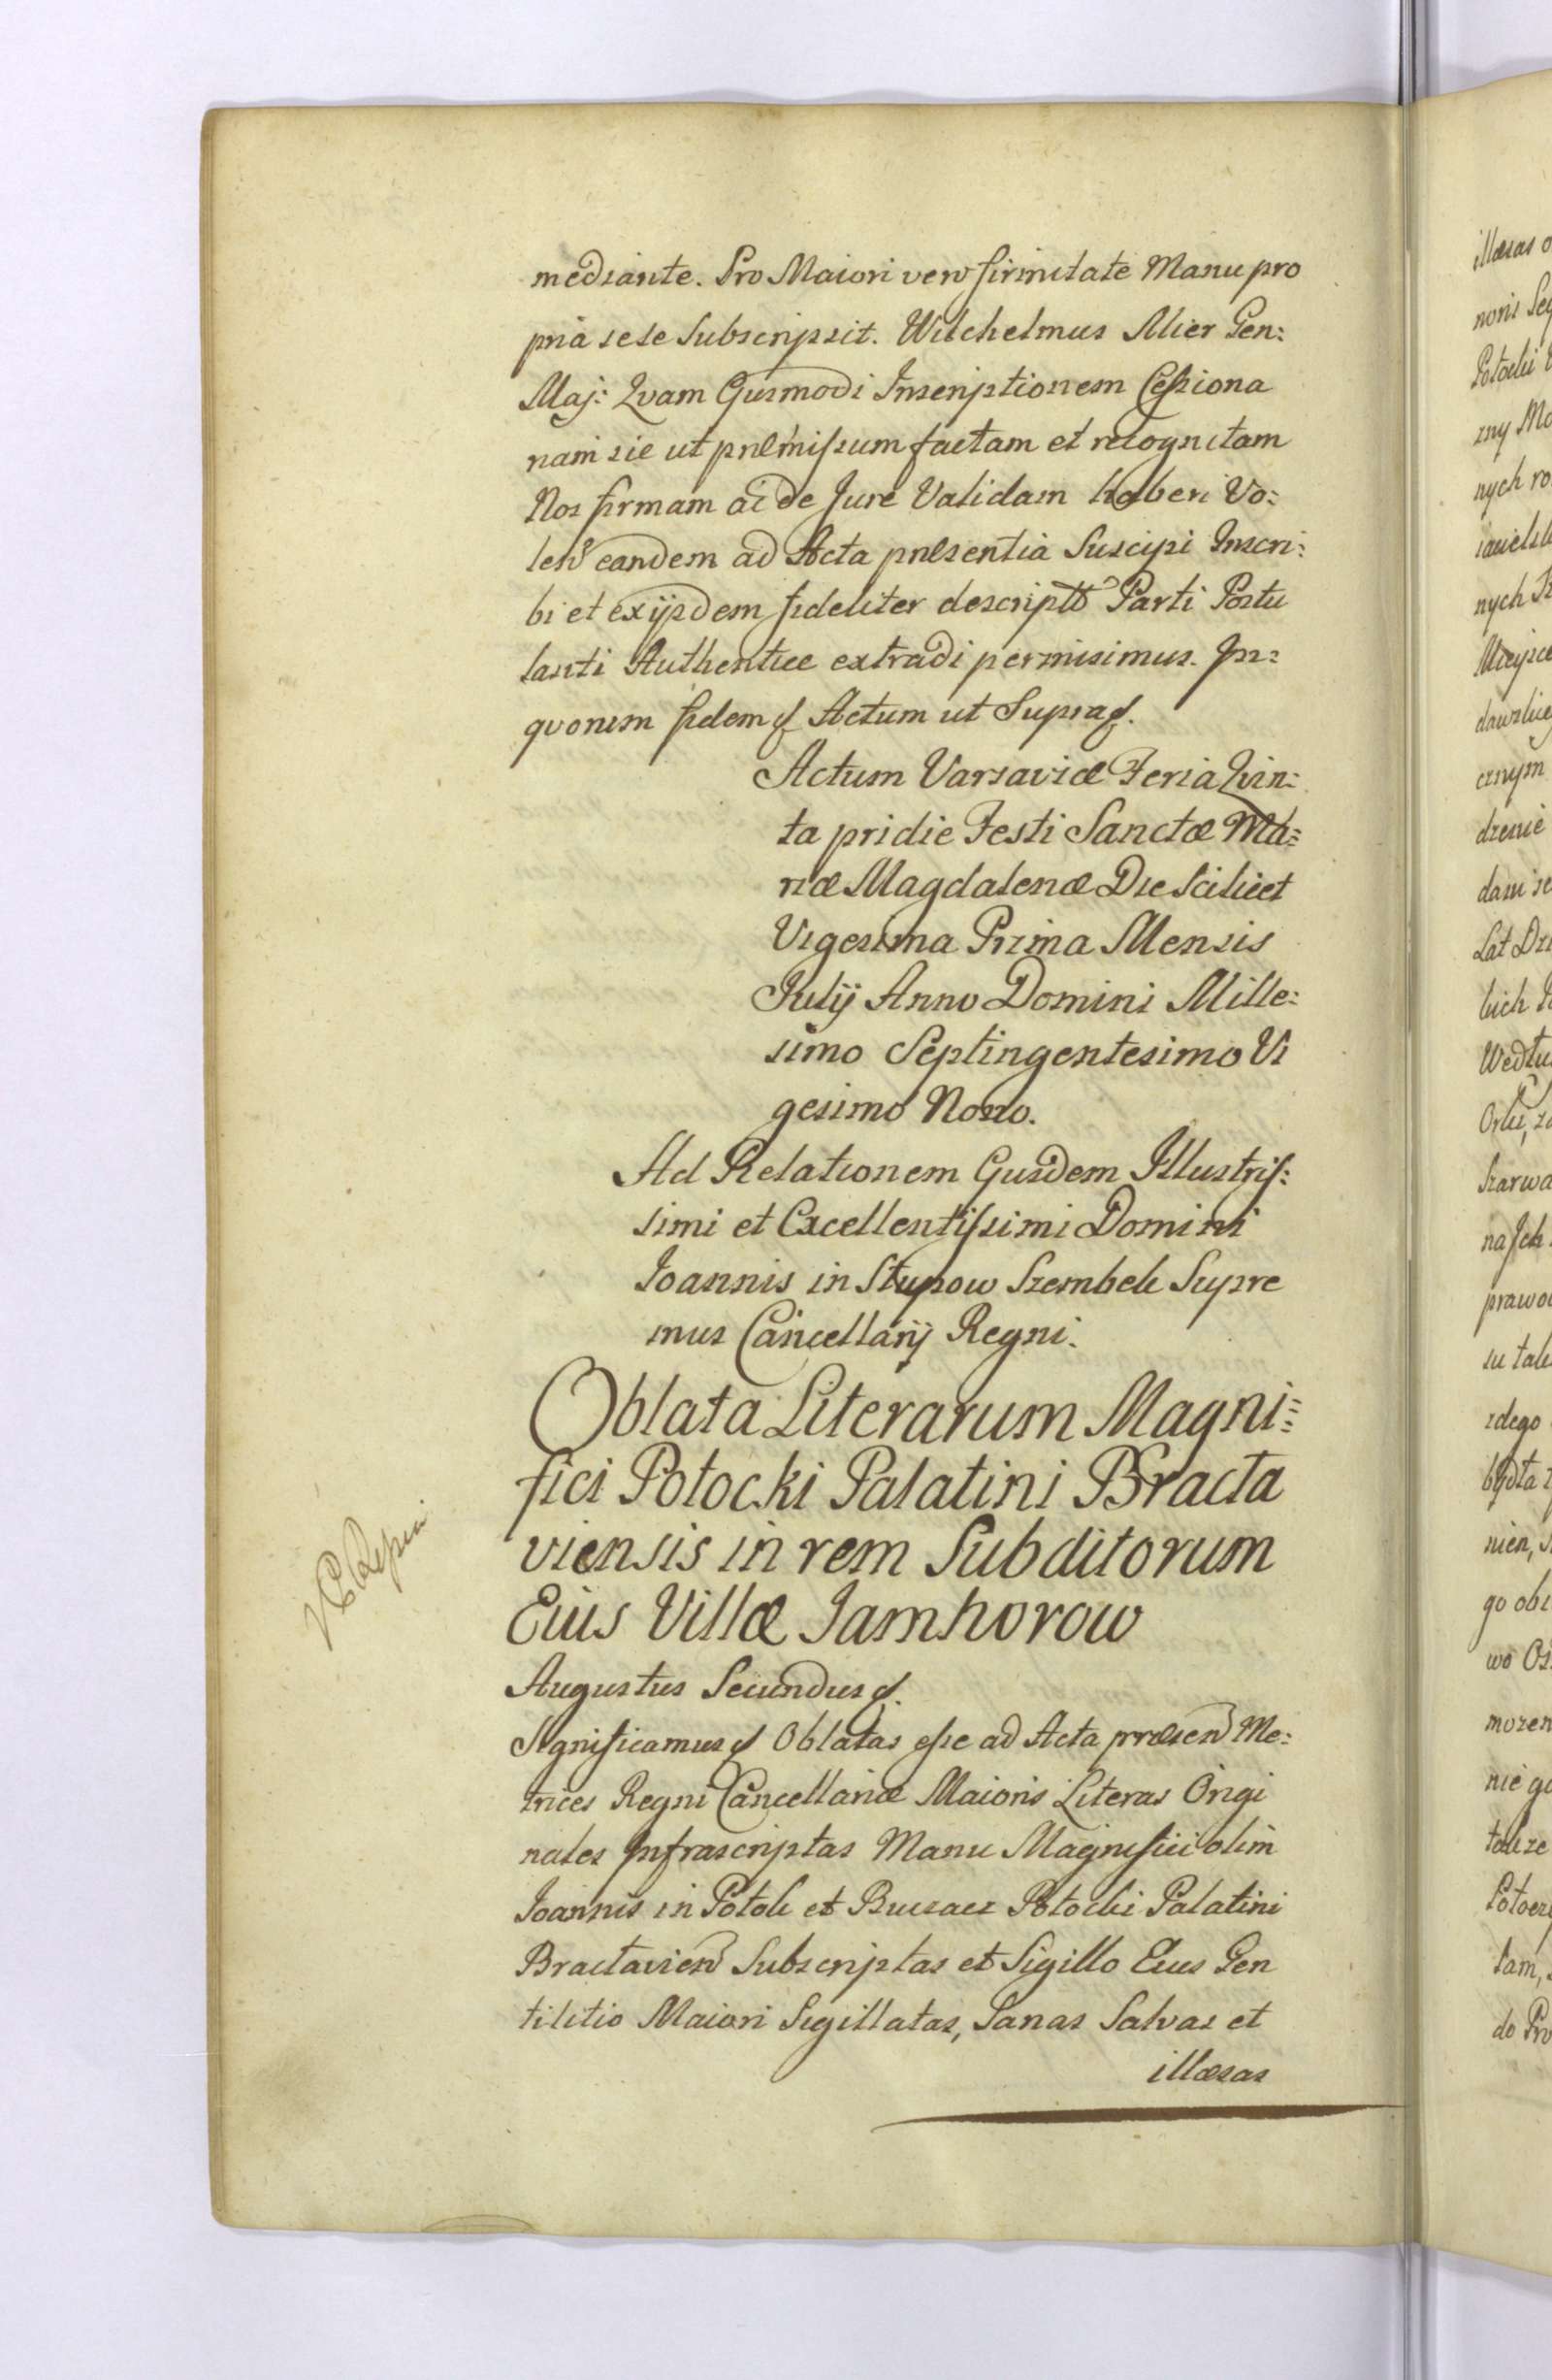 mediante. Pro Maiori vero firmitate Manu pro
pria sese Subscripsit. Wilchelmus Mier Gen:
Maj: Qvam Ejusmodi Inscriptionem Cessiona
riam sic ut præmissum factam et recognitam
Nos firmam ac de Jure Validam haberi Vo:
len̄ eandem ad Acta præsentia Suscipi Inscri:
bi et ex ijsdem fideliter descriptā Parti Postu
lanti Authentice extradi permisimus. In:
qvorum fidem Actum ut Supra.
Actum Varsaviæ Feria Qvin:
ta pridie Festi Sanctæ Ma:
riæ Magdalenæ Die Scilicet
Vigesima Prima Mensis
Julij Anno Domini Mille:
simo Septingentesimo Vi
gesimo Nono.
Ad Relationem Ejusdem Illustris:
simi et Excellentissimi Domini
Joannis in Słupow Szembek Supre
mus Cancellarij Regni.
Oblata Literarum Magni:
fici Potocki Palatini Bracta
viensis in rem Subditorum
Eius Villæ Jamhorow
Augustus Secundus
Significamus Oblatas esse ad Acta præsen̄ Me:
trices Regni Cancellariæ Maioris Literas Origi
nales Infrascriptas Manu Magnifici olim
Joannis in Potok et Buczacz Potocki Palatini
Bractavien̄ Subscriptas et Sigillo Eius Gen
tilitio Maiori Sigillatas, Sanas Salvas et
illæsas